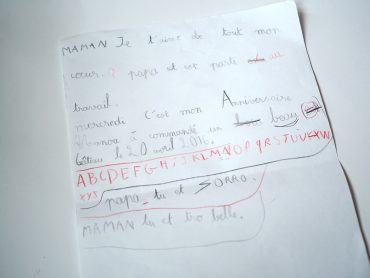 MAMAN Je t'aime de tout mon
coeur. ? papa et est parti au
travail.
mercredi C'est mon Anniversaire
à commandé un
Gâteau le 20 avril 2016.
ABCDEFGHIJKLMNOPQRSTUVWX
XYZ
papa tu et ZORRO.
MAMAN tu et tro belle.